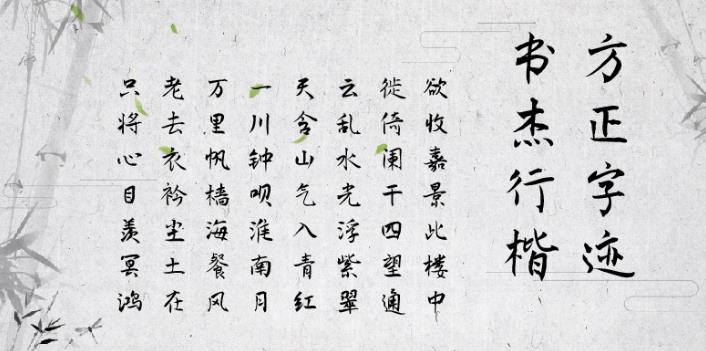 方正字迹
书杰行楷
欲收嘉景此楼中
徙倚阑干四望通
云乱水光浮紫翠
天含山气入青红
一川钟呗淮南月
万里帆樯海餐风
老去衣衿尘土在
只将心目羡冥鸿